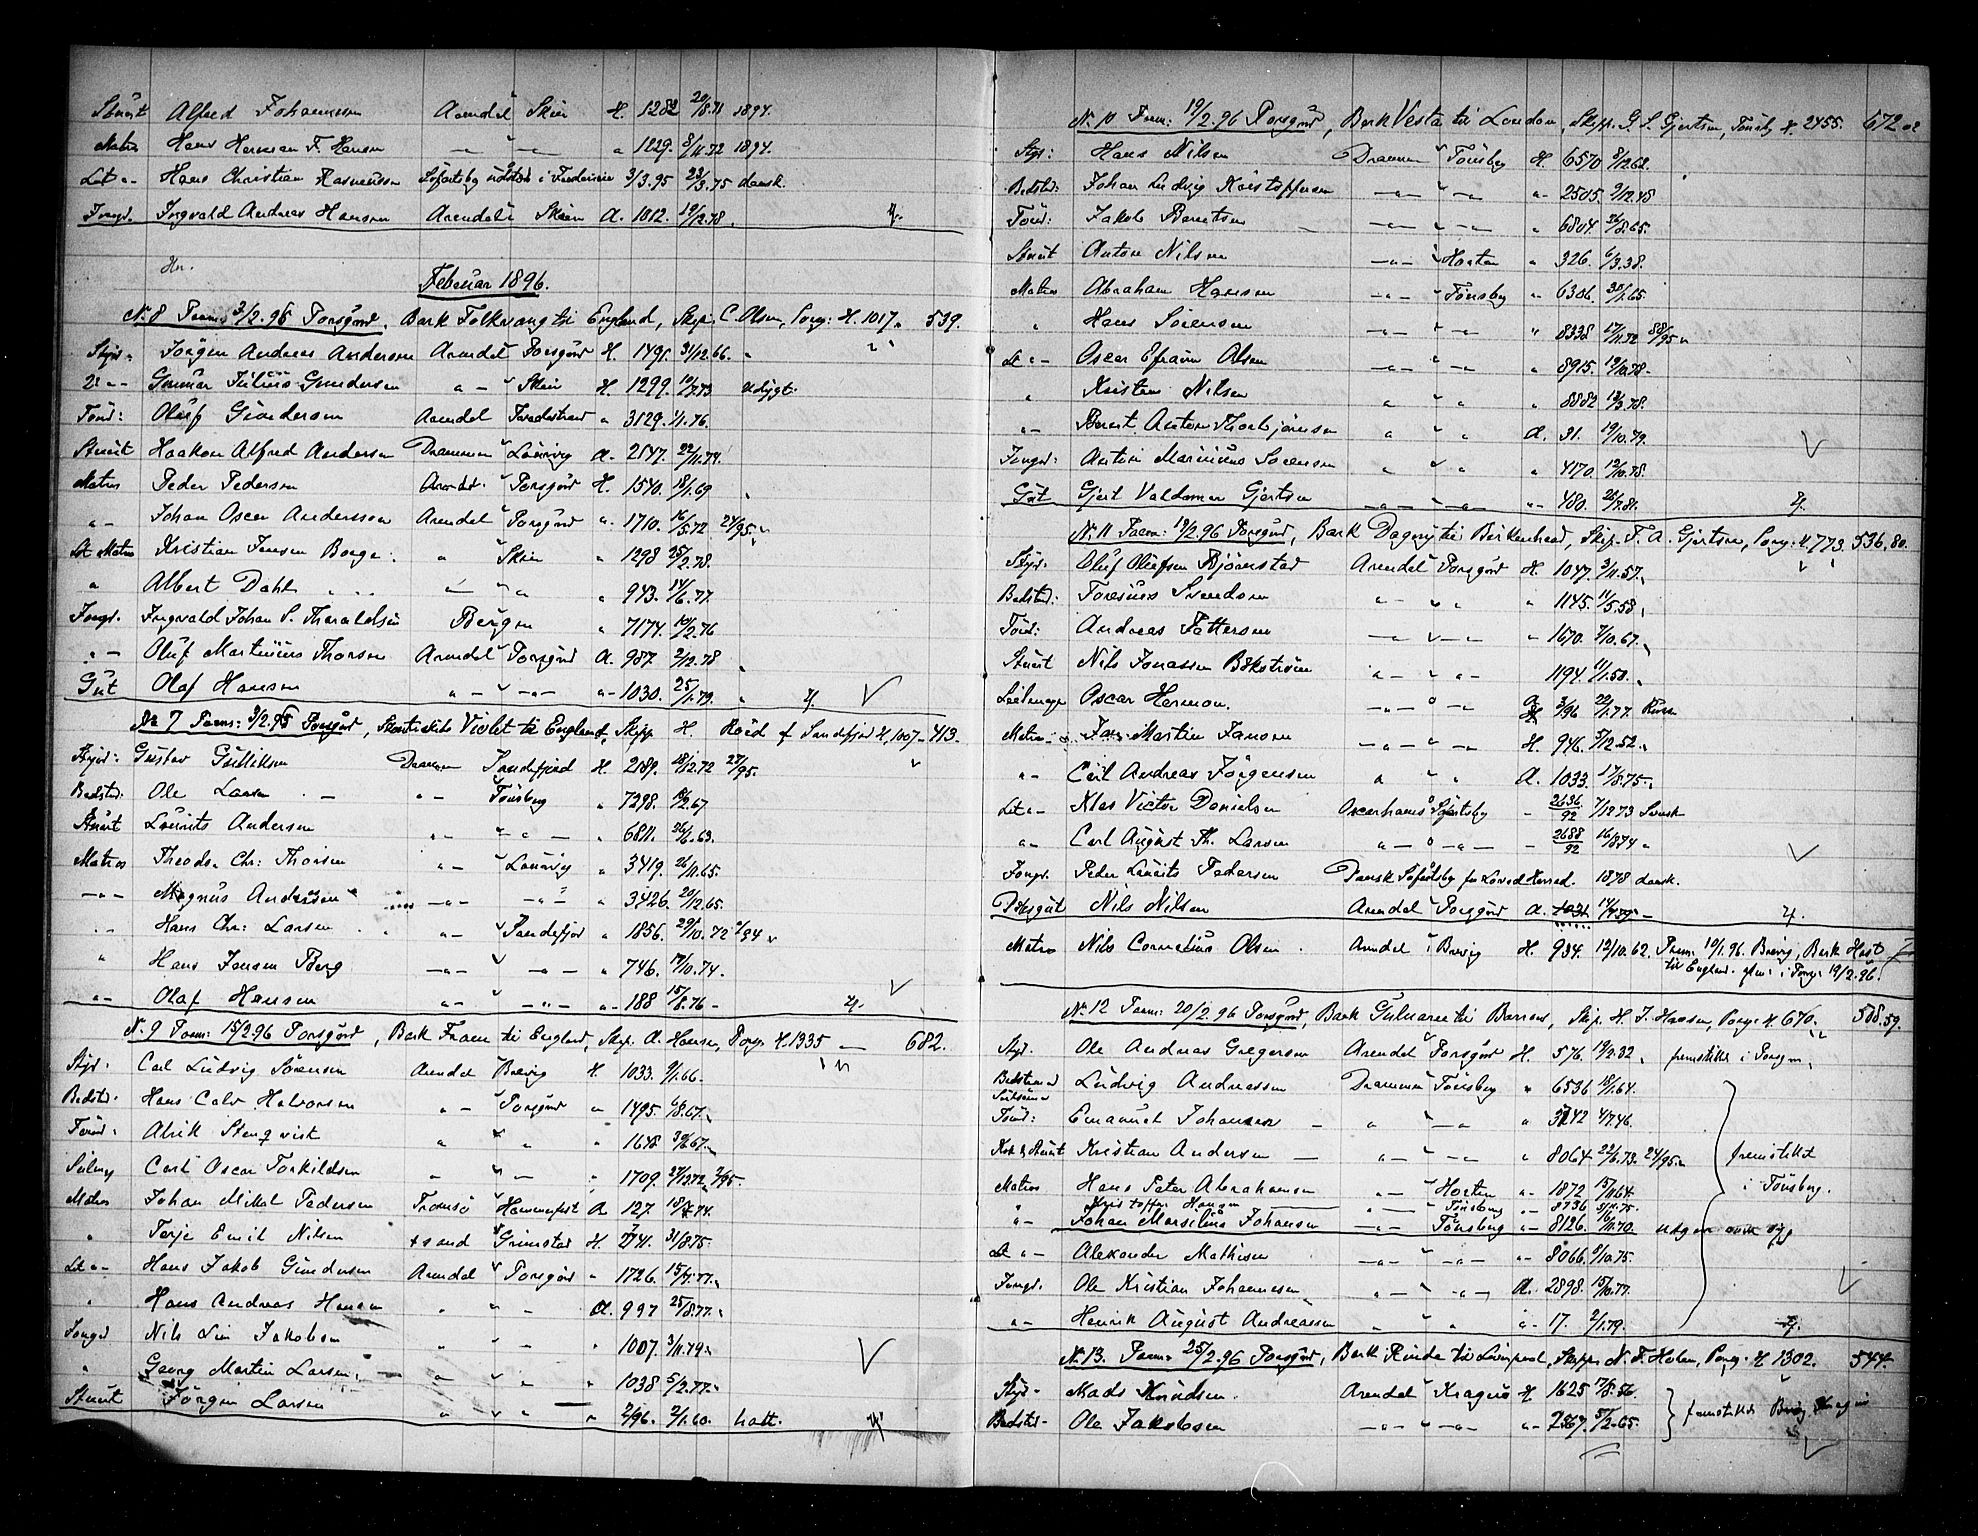 Stuert Alfred Johannessen Arendal " Skien H. 1282 20/8.71 1894.
Matros Hans Herman F. Hansen — " — " 1229. 8/11.72 1894.
Let "- Hans Christian Rasmussen Søfartsbog udstedt i Fredericia 3/3.95 23/3.75 dansk.
Jungm. Ingvald Andreas Hansen Arendal Skien A. 1012. 19/12.78.
Februar 1896.
No 8 Porsgrund, Bark Folkvang til England, Skip. C. Olsen, Porsg: H. 1017. 539.
Styrm. Jørgen Andreas Andersen Arendal Porsgrund H. 1491. 31/12.66.
2 "- Gunnar Julius Gundersen " — " Skien H. 1299. 10/7.73
Tømd: Oluf Gundersen Arendal Tvedestrand " 3129. 1/1.76.
Stuert Haakon Alfred Andersen Drammen " Laurvig A. 2547. 22/11.74.
Matros Peder Pedersen Arendal " Porsgrund H. 1540. 18/1.69
"- Johan Oscar Andersson Arendal " Porsgrund " 1710. 16/5.72 24/95.
Let Matros Kristian Jensen Borge " " Skien " 1298 25/2.78.
" Albert Dahl " " 943. 14/6.77.
Jungm. Ingvald Johan S. Tharaldsen Bergen " 7174. 10/2.76
"- Oluf Martinius Thorsen Arendal " Porsgrund A. 987. 2/12.78
Gut Olaf Hansen " — " — "- 1030. 25/1.79.
No 7 Porsgrund, Violet til England, Skipp H. Røed af Sandefjord H. 1007 - 413.
Styrd: Gustav Gulliksen Drammen Sandefjord H. 2189. 18/12.72 27/95.
Bedstd. Ole Larsen " — Tønsberg " 7298. 2.67
Stuert Lauritz Andersen " — " 6811. 26/1.63.
Matros Theodor Chr: Thorsen " — " Laurvig " 3419. 26/11.65.
"- Magnus Andersen — " — " 3426. 20/12.65.
"- Hans Chr: Larsen " — " Sandefjord " 1856. 29/10.72 94
" Hans Jensen Berg — " — " 746. 17/10.74.
"- Olaf Hansen " — " — "- 188 15/8.76 -
No. 9 15/2.96 Porsgrund, Bark Fram til England, Skip. A. Hansen, Porsg H. 1335 — 682.
Styrd. Carl Ludvig Sørensen Arendal " Brevig H. 1033. 9/1.66.
Bedstd. Hans Halvorsen " — " Porsgrund " 1495. 6/8.67.
Tømd. Alrik Stenqvist " " " 1648 67.
Carl Oscar Torkildsen " " " 1709. 27/12.72, 95.
Matros Johan Mikal Pedersen Tromsø " Hammerfest A 127. 18/.74.
" Terje Emil Nilsen " Grimstad H. 31/8.75.
Let "- Hans Jakob Gundersen Arendal " Porsgrund " 1726. 15/7.77.
" Hans Andreas Hansen " " - A. 997 25/8.77.
Jungm Nils Jakobsen " " 1007. 3/11.79.
" Georg Martin Larsen " " 1038 5/2.77.
Stuert Jørgen Larsen " " " 2/96. 2/1.60.
No. 10 19/2.96 Porsgrund, Bark Vesta til London, Skip. G. S. Gjertsen, Tønsbg H. 2455. 672.02
Styr: Hans Nilsen Drammen " Tønsberg H. 6570 8/12.62.
Bedstd: Johan Ludvig Kristoffersen — " — " - " 2505. 9/12.48
Tømd: Jakob Berntsen — " — " - " 6804. 26/8.65.
Stuert Anton Nilsen — " — " Horten " 326. 6/3.38.
Matros Abraham Hansen — " — " Tønsberg " 6306. 30/1.65.
" Hans Sørensen — " — " " 8338 17/11.72
Let "- Oscar Efraim Olsen — " — " 8915. 19/10.78.
" Kristen Nilsen — " — " " 8882 13/3.78.
"- Bernt Anton Thorbjørnsen " " " A. 31. 19/10.79.
Jungm: Anton Marinius Sørensen " " " " 4170. 12/10.78.
Gut Gjert Valdemar Gjertsen — " — " "- 480. 26/7.81.
No. 11 19/2.96 Porsgrund, Bark Dagny til Birkenhead, Skip. F. A. Gjertsen, Porsg: H. 773. 536,80.
Styrd. Oluf Olufsen Bjørnstad Arendal " Porsgrund H. 1047. 3/11.57.
Bedstd: Svendsen " — " " 1145. 11/5.58.
Tømd: Andreas Pettersen — " — " 1670. 7/10.67.
Stuert Nils Jonassen Bækstrøm " — " " — 1194. 11/1.50.
Oscar Herman. — " — " — " 3/96 22/1.77.
Matros Martin Jansen — " — " — H. 946. 5/12.52.
"- Carl Andreas Jørgensen " " " A. 1033. 17/8.75.
Let "- Klas Victor Danielsen Oscarhamns Søfartsbg - 2636/92 7/12 73 Svensk
"- Carl August Th. Larsen " — " — " — - 2688/92 16/8 74 "
Jungm. Peder Lauritz Pedersen Dansk Søfartsbg 1878 dansk.
Nils Nilsen Arendal " Porsgrund A. 1031
Matros Nils Cornelius Olsen Arendal " Brevig H. 934. 12/10.62. 10/1.96. Brevig, Bark Høst
til England 19/2.96.
No. 12 20/2.96 Porsgrund, Bark Gulnare til Barrow, Skip. H. J. Hansen, Porsg. H. 670. 508.59.
Styrd. Ole Andreas Gregersen Arendal " Porsgrund H. 576. 19/2.32 fremstillet i Porsgrn,
Bedstemd Ludvig Andreassen Drammen " Tønsberg " 6536 18/1.64.
Tømd: Emanuel Johansen — " " — " 3242 4/7.46.
Kok & Stuert Kristian Andersen — " — " " 8064 22/6.73. 24/95. fremstillet
Matros Hans Peter Abrahamsen " — " Horten " 1872 15/11.64. i Tønsberg.
" Kristoffer Hansen " Tønsberg " 8736 5/11.75.
"- Johan Marselius Johansen — " — Tønsberg " 8126. 16/11.70.
Let "- Alexander Mathisen — " — " — " 8066. 9/10.75.
Jungm. Ole Kristian Johannesen " " — A. 2898. 15/10.77.
"- Henrik August Andreassen " " " " 17. 2/1.79.
No. 13. 25/2.96 Porsgrund, Bark Rinda til Liverpool, Skipp N. F. Holm, Porsg. H 1302. 544.
Styrd- Mads Knudsen. Arendal " Kragerø H 1625 17/8.56.
Bedstd- Ole Jakobsen — " — " — " 5/2.65. fremstillet